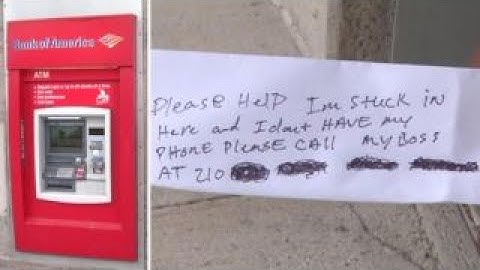 Bank of America
ATM
Please HelP Im stuck in
Here and I dont HAVE my
PHONE PLEASE CALL MY BOSS
AT 210